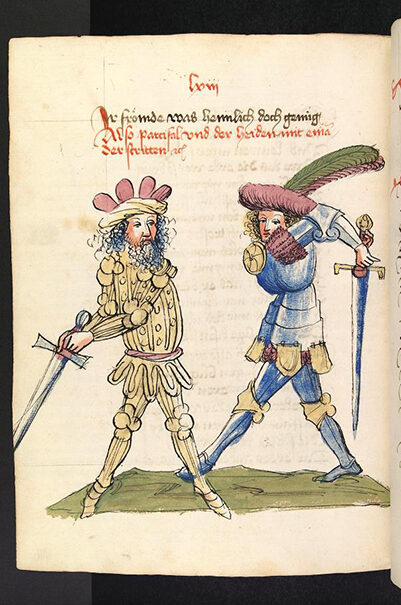 lviij
Ir frömde was heimlich doch genüg
Also partifal vnd der heiden mit eina
der stritten